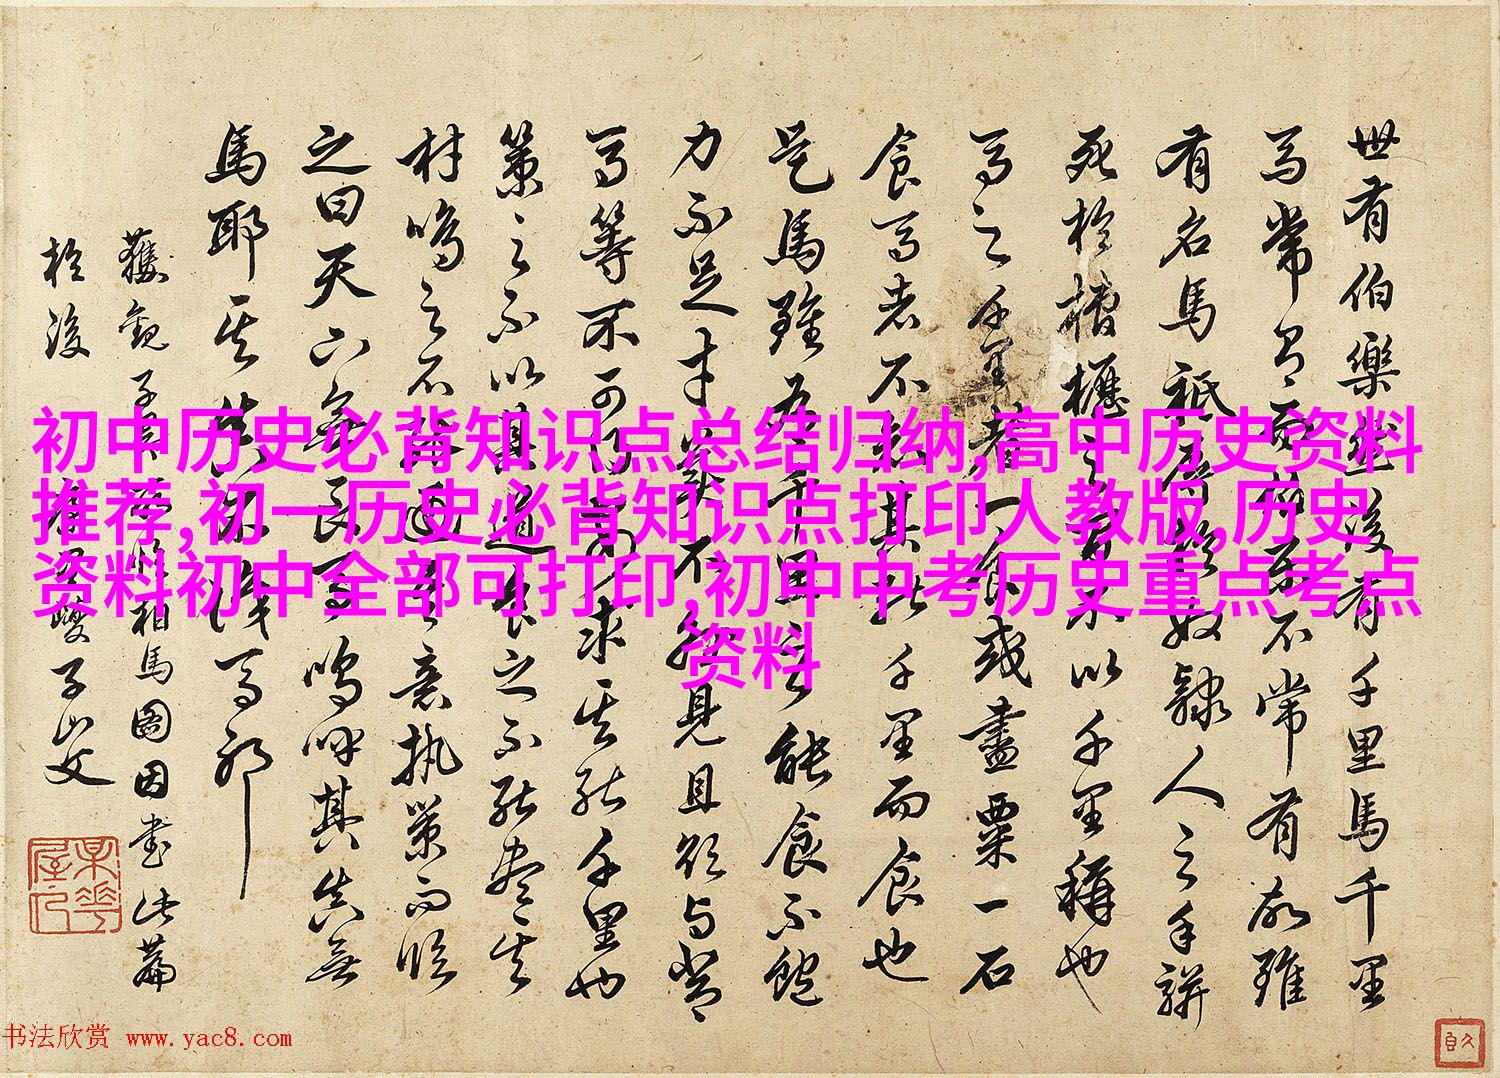 初中历史必背知识点总结归纳,高中历史资料
推荐,初一历史必背知识点打印人教版,历史
资料初中全部可打印,初中中考历史重点考点
资料
世有伯樂然後有千里馬千里
馬常有而伯樂不常有故雖
有名馬祇辱於奴隸人之手騈
死於槽櫪之間不以千里稱也
馬之千里者一食或盡粟一石
食馬者不知其能千里而食也
是馬雖有千里之能食不飽
力不足才美不外見且欲與常
馬等不可得安求其能千里也
策之不以其道食之不能盡其
材鳴之不能通其意執策而臨
之曰天下無良馬嗚呼其真無
馬耶其真不識馬邪
獲觀子相馬圖因書此篇
於後子山
书法欣赏 www.yac8.com